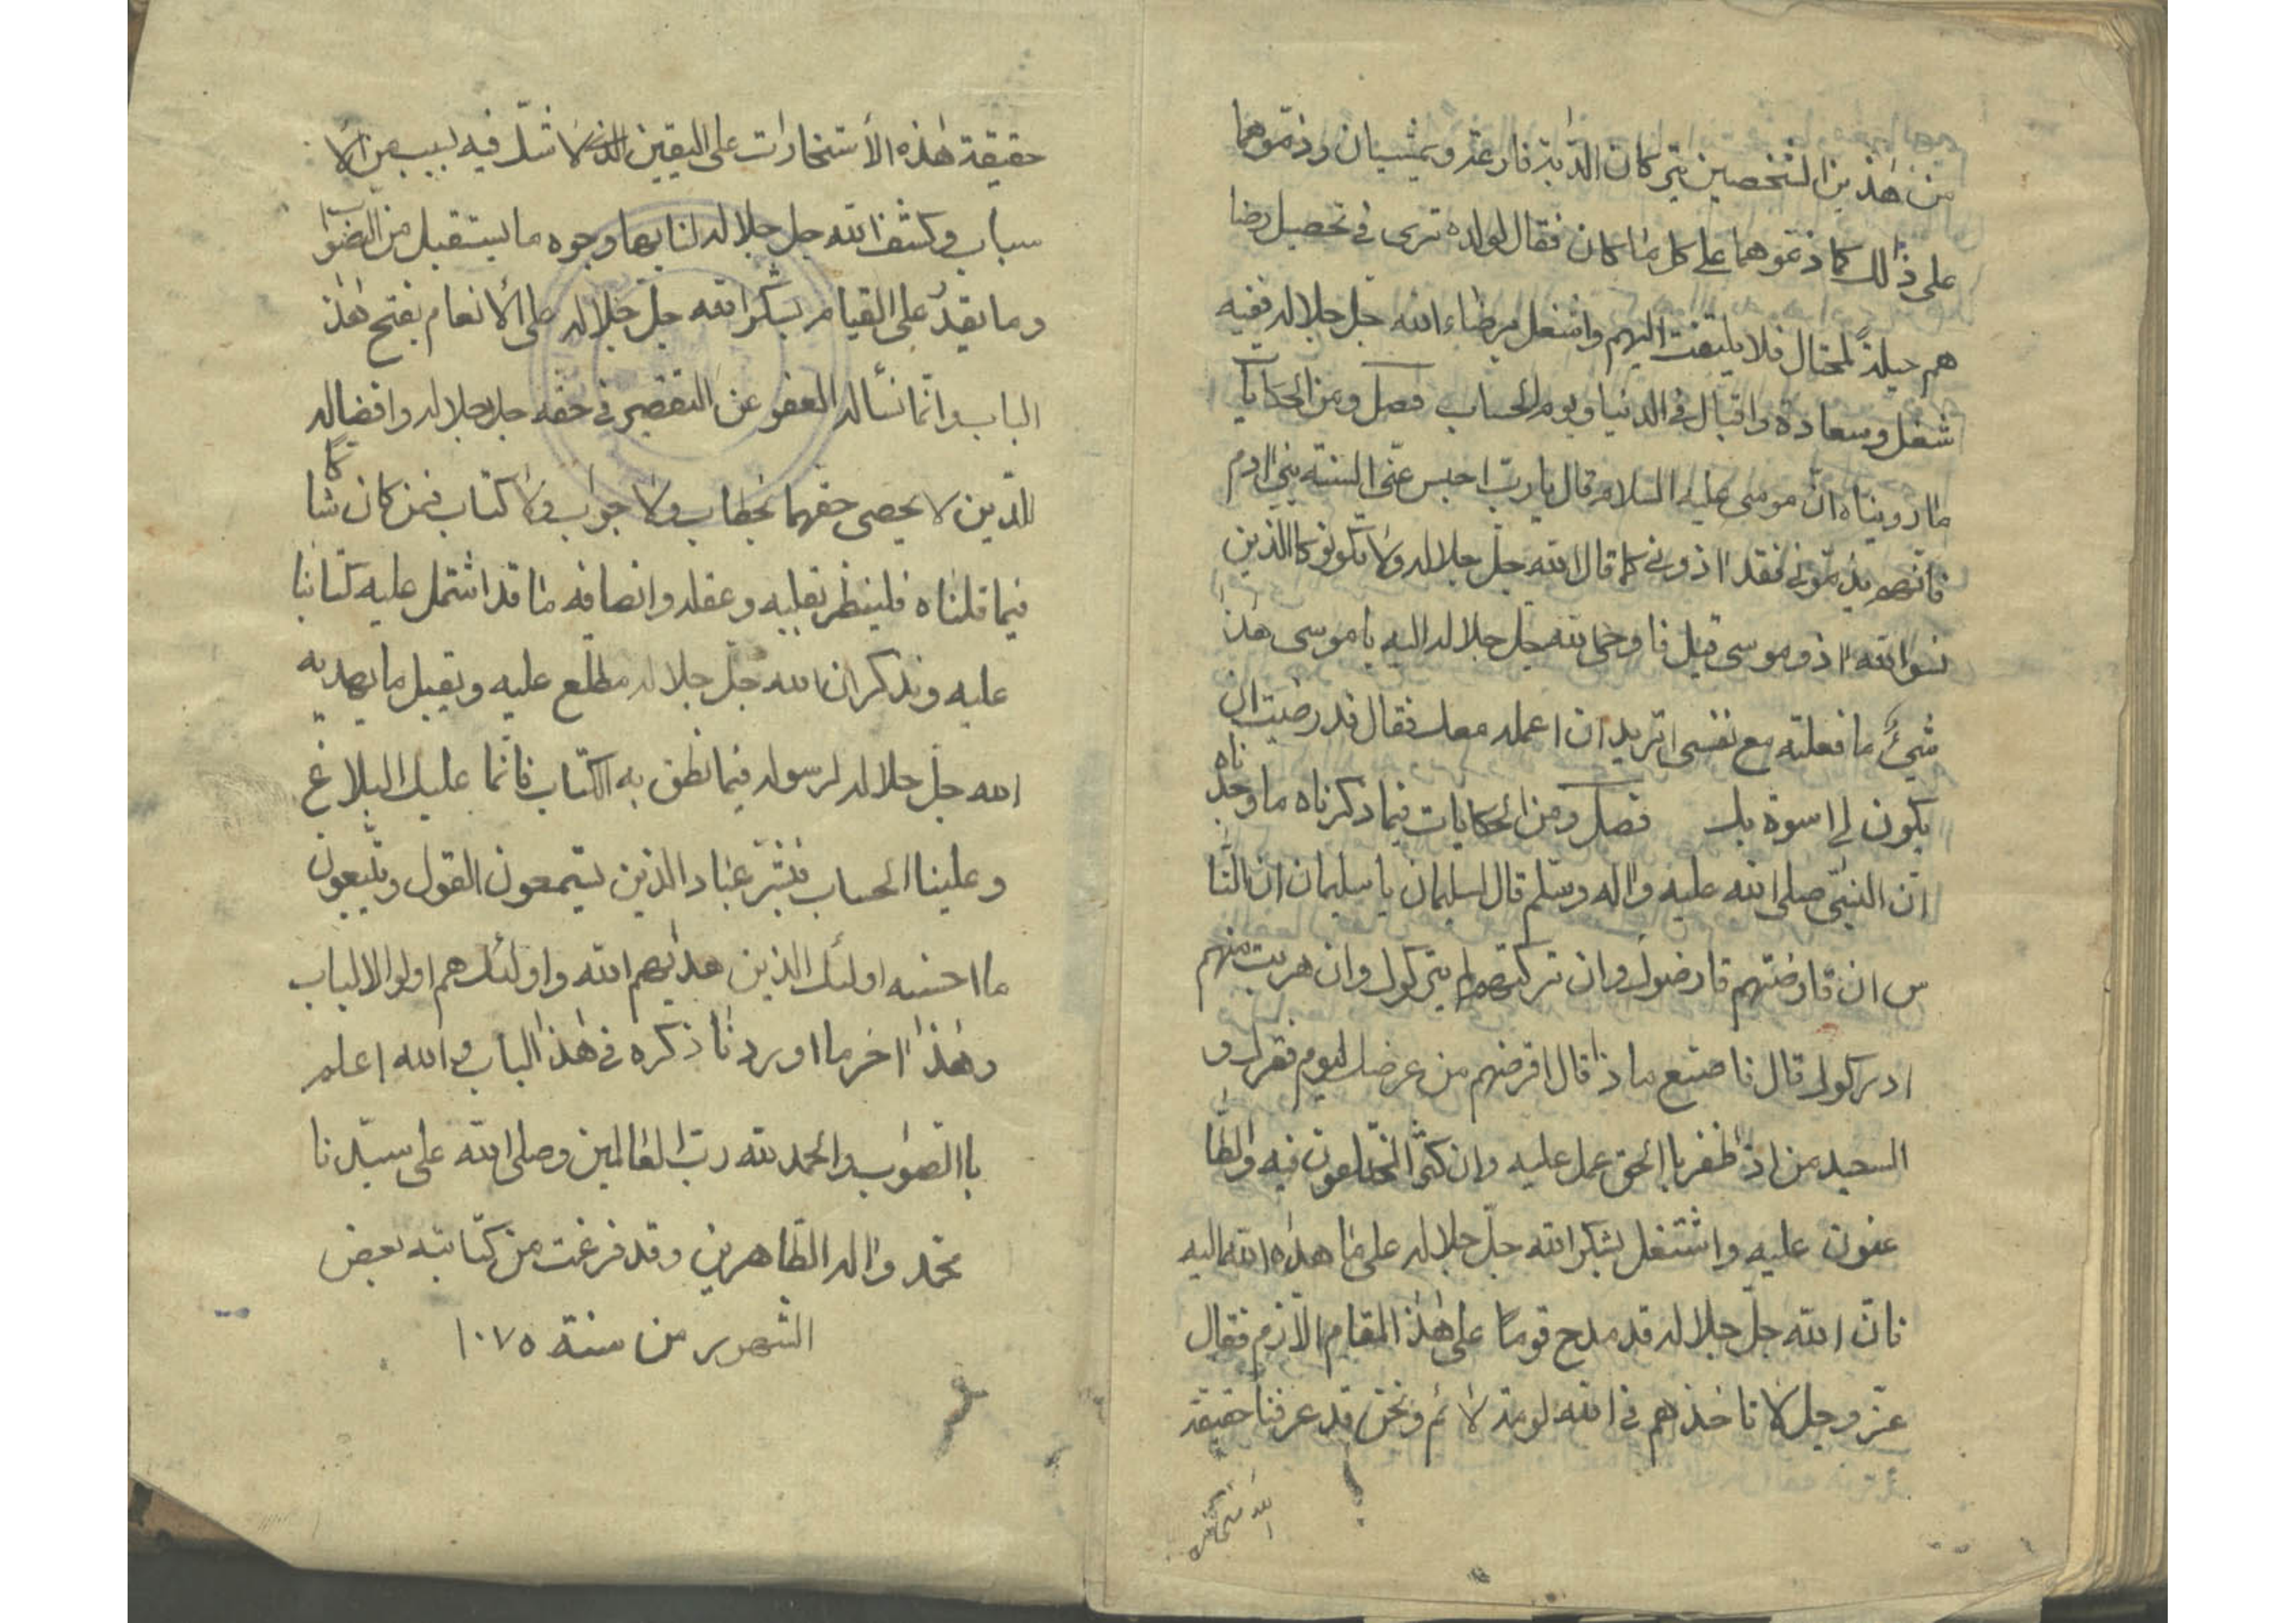 من هٰذين الشخصين يتركان الدّابة فارغة ويمشيان وذمّوهما
على ذٰلك كما ذمّوهما على كل ما كان فقال لولده ترى في تحصيل رضا
هم حيلةً لمحتال فلا يلتفت اليهم واشتغل برضاء الله جلّ جلاله ففيه
شغل وسعادة واقبال في الدنيا ويوم الحساب فصل ومن الحكايا
ما رويناه انّ موسى عليه السلام قال يا ربّ احبس عنّي السنة بني ادم
فانّهم يذمّوني فقد اذوني كما قال الله جلّ جلاله ولا تكونو كاالذين
نسوا الله اذو موسى قيل فاوحى الله جلّ جلاله اليه يا موسى هٰذ
شيءٌ ما فعلته مع نفسي اتريد ان اعمله معك فقال قد رضيت ان
يكون لي اسوة بك فصل ومن الحكايات فيما ذكرناه ما وجدناه
انّ النبيّ صلى الله عليه واله وسلّم قال لسليمان يا سليمان ان النّا
س ان قارضتهم قارضوك وان تركتهم لم يتركوك وان هربت منهم
ادركوك قال فاصنع ماذا قال اقرضهم من عرضك ليوم فقرك و
السعيد من اذ ظفر باالحق عمل عليه وان كثر المخذلعون فيه والطّا
عنون عليه واشتغل بشكر الله جلّ جلاله على ما هداه الله اليه
فانّ الله جلّ جلاله قد مدح قومًا على هٰذ المقام الّازم فقال
عزّ وجل لا تاخذهم في الله لومة لائم ونحن قد عرفنا حقيقة
حقيقة هٰذه الأستخارات على اليقين الذي لا شكّ فيه لسبب من الا
سباب وكشف الله جلّ جلاله لنا بها وجوه ما يستقبل من الصّواب
وما يقدُ على القيام بشكر الله جلّ جلاله على الأنعام بفتح هٰذ
الباب وانّما نسأله العفو عن التقصير في حقه جل جلاله وافضاله
اللّذين لا يحصى حقهما بخطاب ولا جواب ولا كتاب فمن كان شاكا
فيما قلناه فلينظر بقلبه وعقله وانصافه ما قد اشتمل عليه كتابنا
عليه ويذكر ان الله جلّ جلاله مطّلع عليه ويقبل ما يهديه
الله جلّ جلاله لرسوله فيما نطق به الكتاب فانّما عليك البلاغ
وعلينا الحساب فبشّر عباد الذين يستمعون القول ويتّبعون
ما احسنه اولئك الذين هديهم الله واولئك هم اولوا الالباب
وهٰذا اخر ما اوردنا ذكره في هٰذا الباب والله اعلم
باالصّواب والحمد لله ربّ العالمين وصلى الله على سيّدنا
محمّد واله الطّاهرين وقد فرغت من كتابته بعض
الشهور من سنة ١٠٧٥